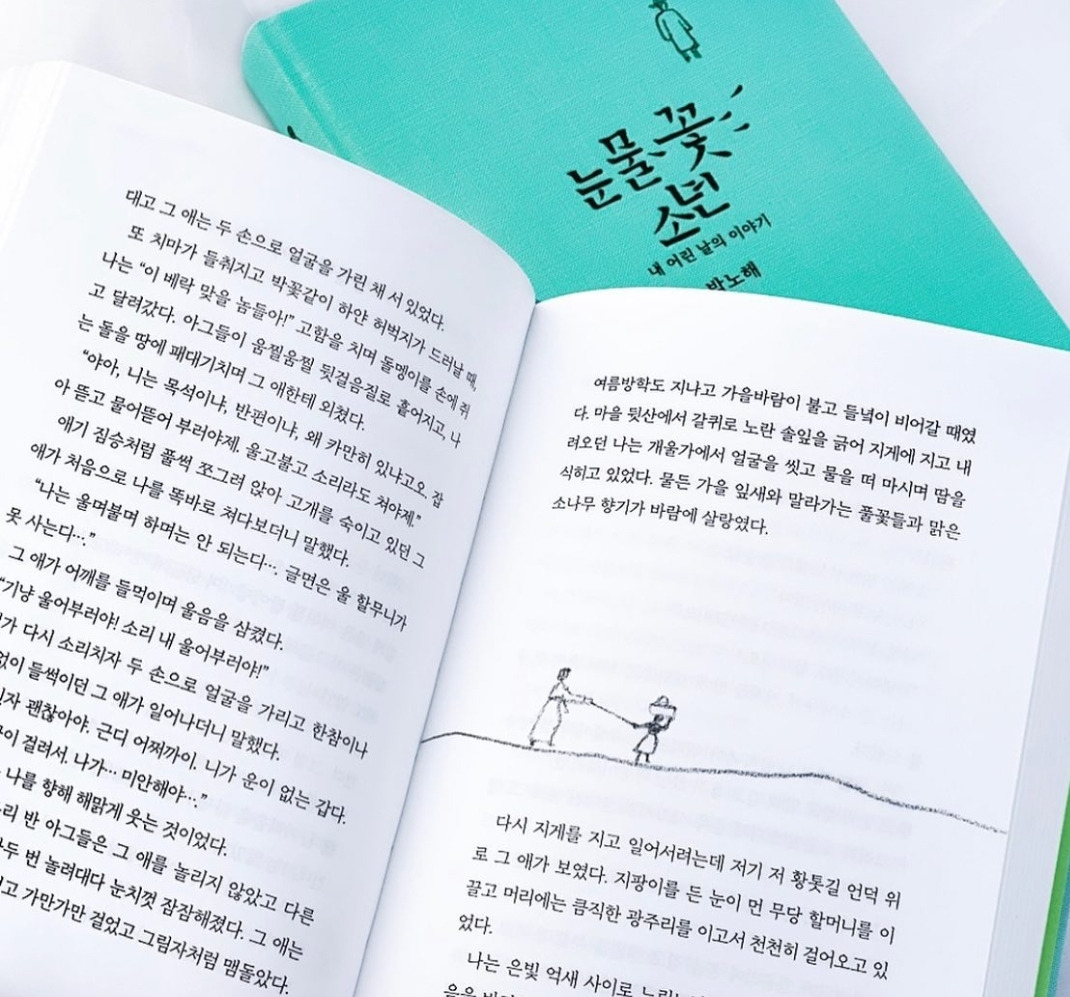 눈물꽃
소년
내 어린 날의 이야기
박노해
대고 그 애는 두 손으로 얼굴을 가린 채 서 있었다.
또 치마가 들춰지고 박꽃같이 하얀 허벅지가 드러날 때,
나는 “이 베락 맞을 놈들아!” 고함을 치며 돌멩이를 손에 쥐
고 달려갔다. 아그들이 움찔움찔 뒷걸음질로 흩어지고, 나
는 돌을 땅에 패대기치며 그 애한테 외쳤다.
“야아, 니는 목석이냐, 반편이냐, 왜 카만히 있냐고오. 잡
아 뜯고 물어뜯어 부러야제. 울고불고 소리라도 쳐야제.”
애기 짐승처럼 풀썩 쪼그려 앉아 고개를 숙이고 있던 그
애가 처음으로 나를 똑바로 쳐다보더니 말했다.
“나는 울며불며 하며는 안 되는디…. 글면은 울 할무니가
못 사는디….”
그 애가 어깨를 들먹이며 울음을 삼켰다.
“기냥 울어부러야! 소리 내 울어부러야!”
가 다시 소리치자 두 손으로 얼굴을 가리고 한참이나
없이 들썩이던 그 애가 일어나더니 말했다.
괜찮아야. 근디 어쩌까이. 니가 운이 없는 갑다.
걸려서. 나가… 미안해야….”
나를 향해 해맑게 웃는 것이었다.
반 아그들은 그 애를 놀리지 않았고 다른
두 번 놀려대다 눈치껏 잠잠해졌다. 그 애는
가만가만 걸었고 그림자처럼 맴돌았다.
여름방학도 지나고 가을바람이 불고 들녘이 비어갈 때였
다. 마을 뒷산에서 갈퀴로 노란 솔잎을 긁어 지게에 지고 내
려오던 나는 개울가에서 얼굴을 씻고 물을 떠 마시며 땀을
식히고 있었다. 물든 가을 잎새와 말라가는 풀꽃들과 맑은
소나무 향기가 바람에 살랑였다.
다시 지게를 지고 일어서려는데 저기 저 황톳길 언덕 위
로 그 애가 보였다. 지팡이를 든 눈이 먼 무당 할머니를 이
끌고 머리에는 큼직한 광주리를 이고서 천천히 걸어오고 있
었다.
나는 은빛 억새 사이로